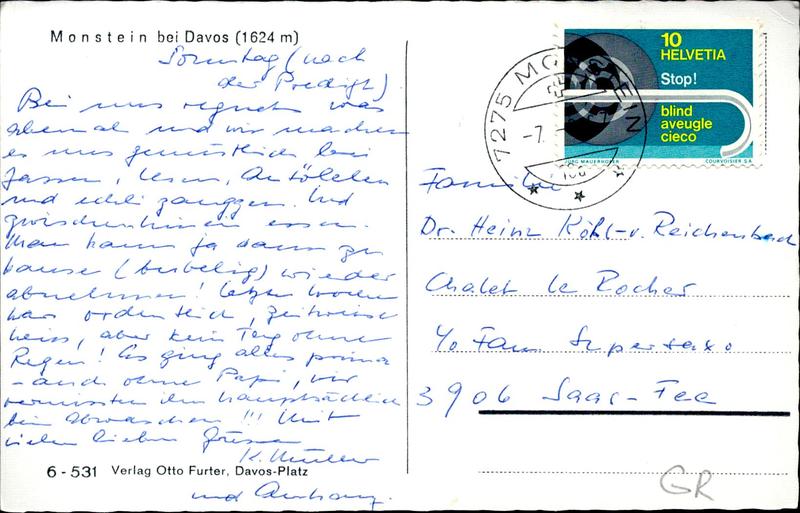 Monstein bei Davos (1624 m)
Sonntag (nach
der Predigt)
Bei uns regnet was
abermal und wir machen
es uns gemütlich bei
Jassen, lesen,
und zanggen. Und
zwischenhinein essen.
Man kann ja dann zu
hause wieder
abnehmen! Letzte Woche
war ordentlich, zeitweise
heiss, aber kein Tag ohne
Regen! Es ging alles prima
- auch ohne Papi, wir
vermissten ihn hauptsächlich
beim Abwaschen!!! Mit
vielen lieben Grüssen
K. Müller
und Anhang.
6 - 531 Verlag Otto Furter, Davos-Platz
7275 MONSTEIN
-7.
10
HELVETIA
Stop!
blind
aveugle
cieco
JÖRG MAUERHOFER COURVOISIER S.A.
Familie
Dr. Heinz Köhl-v. Reichenbach
Chalet le Rocher
c/o Fam. Supersaxo
3906 Saas-Fee
GR